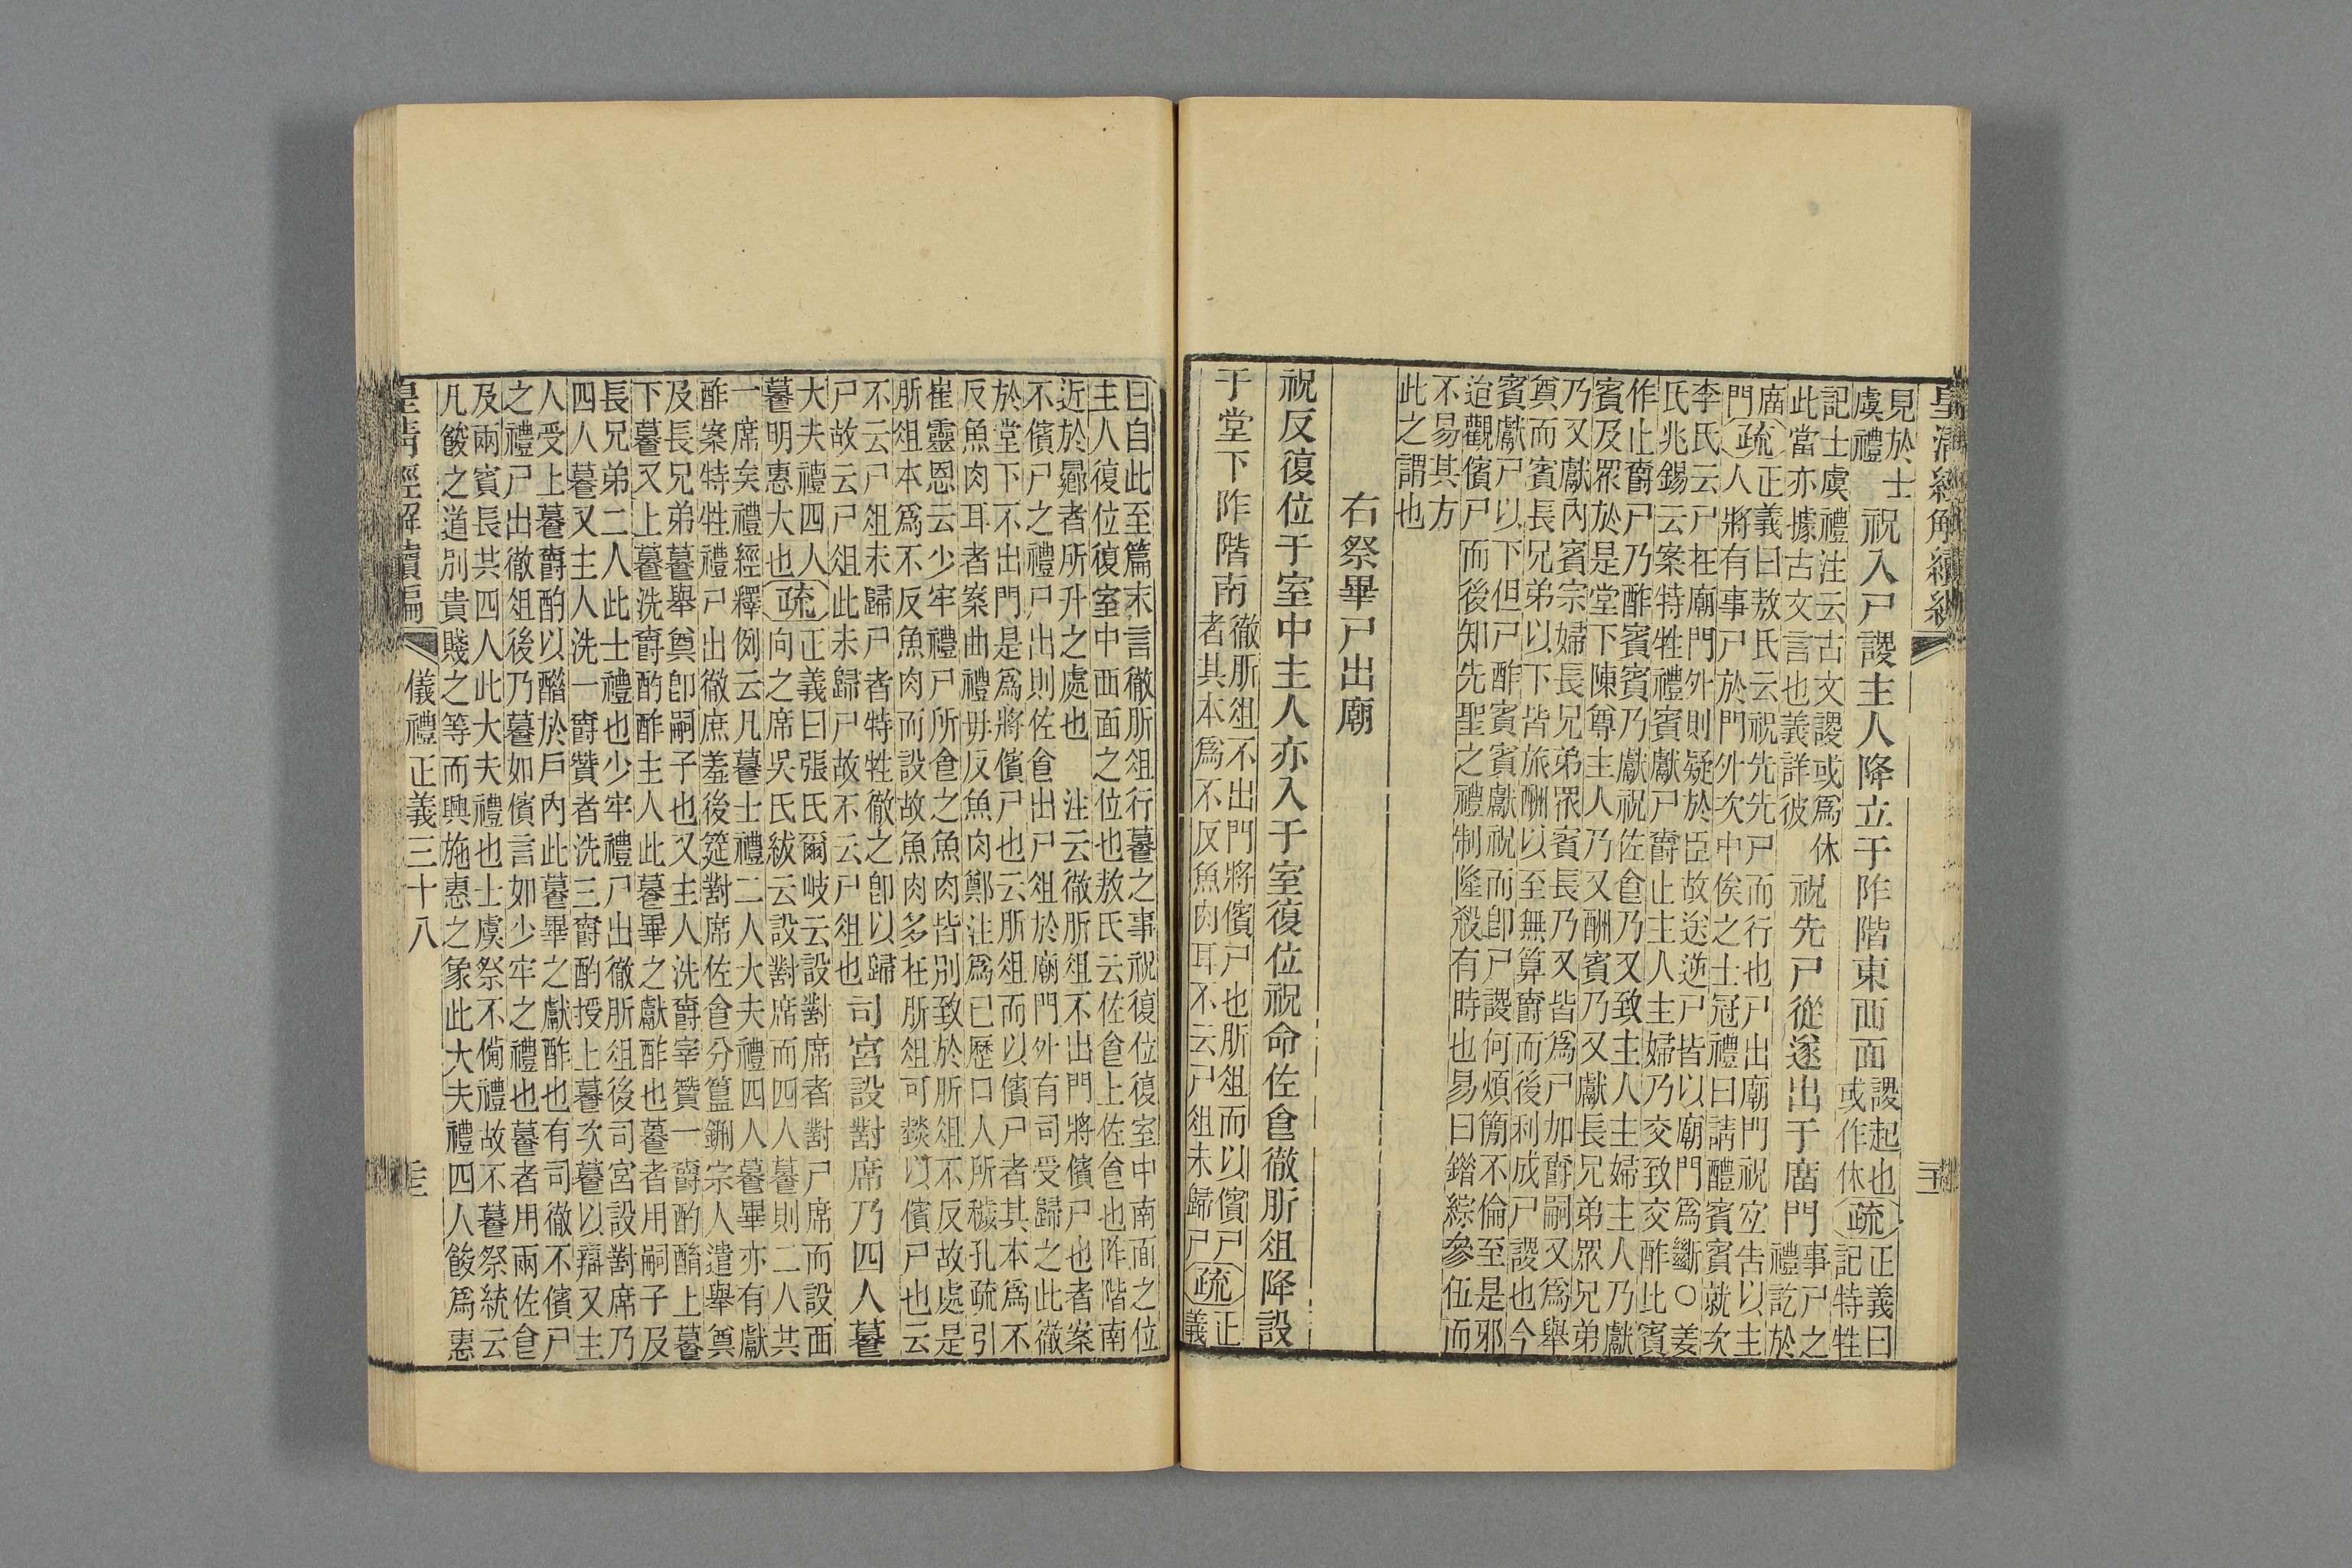 皇清經解續編
三十二
見於士
虞禮
祝入尸謖主人降立于阼階東西面
謖起也
或作休
疏
正義曰
記特牲
記士虞禮注云古文謖或為休
此當亦據古文言也義詳彼
祝先尸從遂出于廟門
事尸之
禮訖於
廟
門
疏
正義曰敖氏云祝先先尸而行也尸出廟門祝立告以主
人將有事尸於門外次中俟之士冠禮曰請醴賓賓就次
李氏云尸在廟門外則疑於臣故送逆尸皆以廟門為斷○姜
氏兆錫云案特牲禮賓獻尸爵止主人主婦乃交致交酢此賓
作止爵尸乃酢賓賓乃獻祝佐食乃又致主人主婦主人乃獻
賓及眾於是堂下陳尊主人乃又酬賓乃又獻長兄弟眾兄弟
乃又獻內賓宗婦長兄弟眾賓長乃又皆為尸加爵嗣又為舉
奠而賓長兄弟以下皆旅酬以至無算爵而後利成尸謖也今
賓獻尸以下但尸酢賓賓獻祝而即尸謖何煩簡不倫至是邪
迨觀儐尸而後知先聖之禮制隆殺有時也易曰錯綜參伍而
不易其方
此之謂也
右祭畢尸出廟
祝反復位于室中主人亦入于室復位祝命佐食徹肵俎降設
于堂下阼階南
徹肵俎不出門將儐尸也肵俎而以儐尸
者其本為不反魚肉耳不云尸俎未歸尸
疏
正
義
曰自此至篇末言徹肵俎行䬸之事祝復位復室中南面之位
主人復位復室中西面之位也敖氏云佐食上佐食也阼階南
近於曏者所升之處也 注云徹肵俎不出門將儐尸也者案
不儐尸之禮尸出則佐食出尸俎於廟門外有司受歸之此徹
於堂下不出門是為將儐尸也云肵俎而以儐尸者其本為不
反魚肉耳者案曲禮毋反魚肉鄭注為已歷口人所穢孔疏引
崔靈恩云少牢禮尸所食之魚肉皆別致於肵俎不反故處是
肵俎本為不反魚肉而設故魚肉多在肵俎可燅以儐尸也云
不云尸俎未歸尸者特牲徹之即以歸
尸故云尸俎此未歸尸故不云尸俎也
司宮設對席乃四人䬸
大夫禮四人
䬸明惠大也
疏
正義曰張氏爾岐云設對席者對尸席而設西
向之席吳氏紱云設對席而四人䬸則二人共
一席矣禮經釋例云凡䬸士禮二人大夫禮四人䬸畢亦有獻
酢案特牲禮尸出徹庶羞後筵對席佐食分簋鉶宗人遣舉奠
及長兄弟䬸舉奠即嗣子也又主人洗爵宰贊一爵酌酳上䬸
下䬸又上䬸洗爵酌酢主人此䬸畢之獻酢也䬸者用嗣子及
長兄弟二人此士禮也少牢禮尸出徹肵俎後司宮設對席乃
四人䬸又主人洗一爵贊者洗三爵酌授上䬸次䬸以辯又主
人受上䬸爵酌以醋於戶內此䬸畢之獻酢也有司徹不儐尸
之禮尸出徹俎後乃䬸如儐言如少牢之禮也䬸者用兩佐食
及兩賓長共四人此大夫禮也士虞祭不備禮故不䬸祭統云
凡餕之道別貴賤之等而興施惠之象此大夫禮四人餕為惠
皇清經解續編
儀禮正義三十八